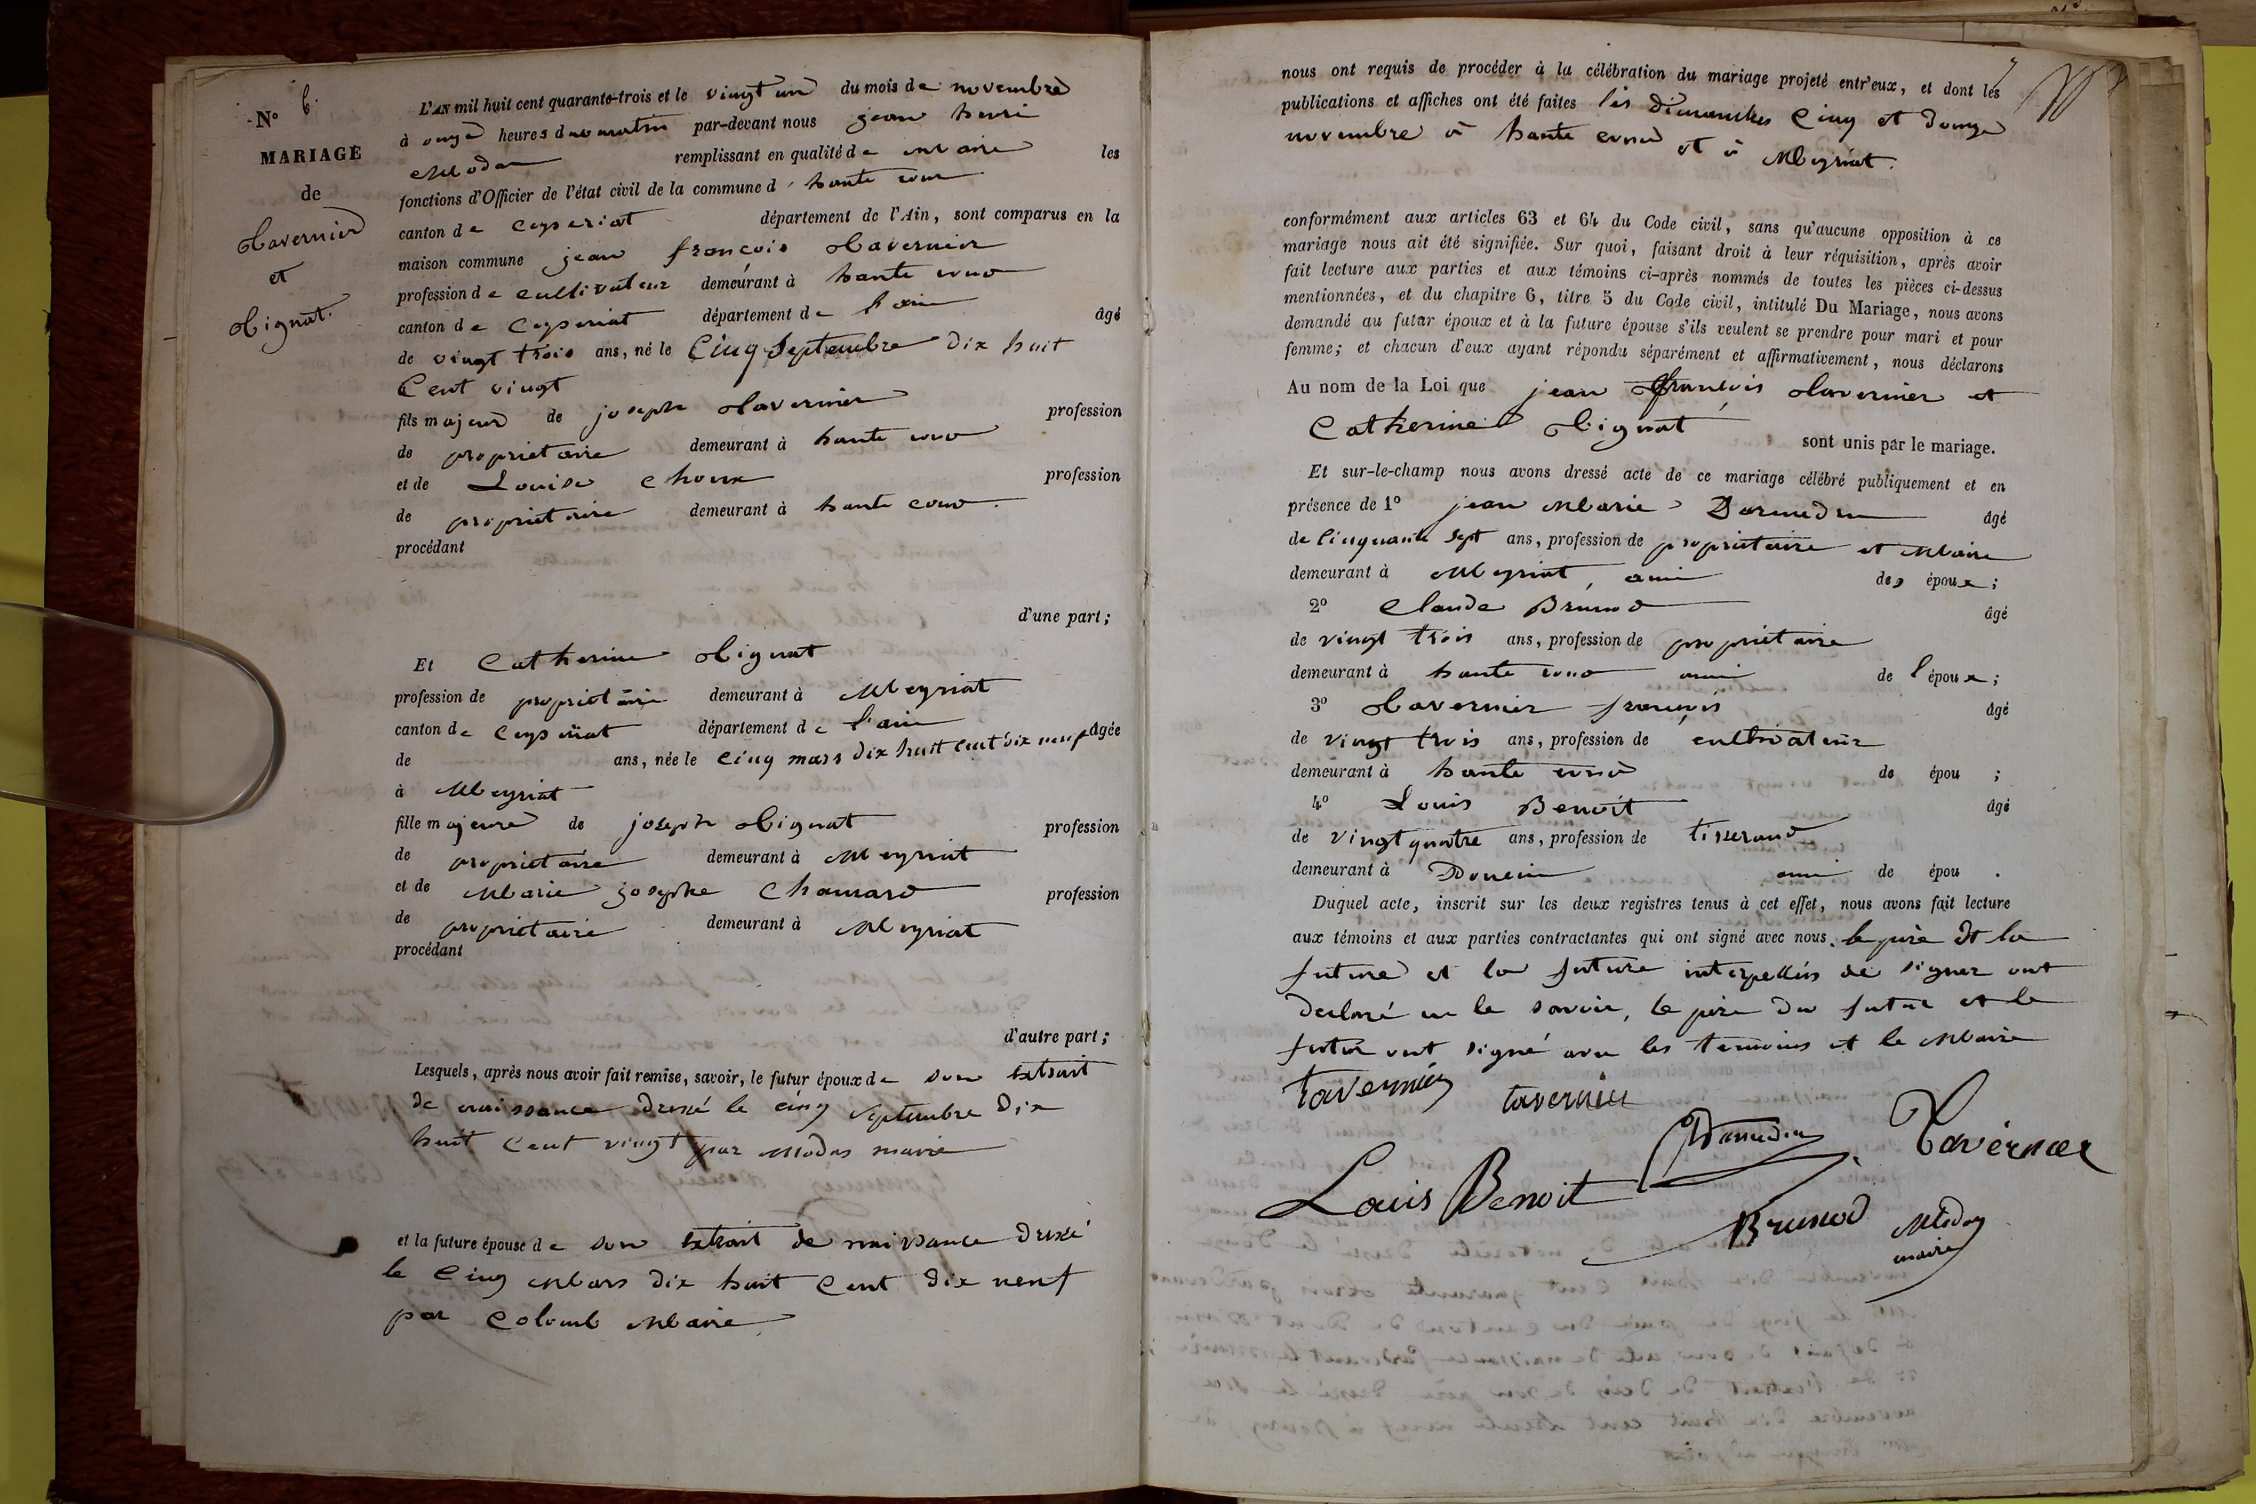 N° 6.
MARIAGE
de
Tavernier
et
Tignat.
L'AN mil huit cent quarante-trois et le vingt un du mois de novembre
à onze heures du matin par-devant nous jean henri
Modas remplissant en qualité de Maire les
fonctions d'Officier de l'état civil de la commune d'hautecour
canton de Ceyseriat département de l'Ain, sont comparus en la
maison commune jean françois Tavernier
profession de cultivateur demeurant à hautecour
canton de Ceyseriat département de l'ain âgé
de vingt trois ans, né le Cinq Septembre dix huit
Cent vingt
fils majeur de joseph Tavernier profession
de propriétaire demeurant à hautecour
et de Louise Choux profession
de propriétaire demeurant à hautecour
procédant
d'une part;
Et Catherine Tignat
profession de propriétaire demeurant à Meyriat
canton de Ceyseriat département de l'ain âgée
de ans, née le cinq mars dix huit cent dix neuf
à Meyriat
fille majeure de joseph Tignat profession
de propriétaire demeurant à Meyriat
et de Marie josephe Chanard profession
de propriétaire demeurant à Meyriat
procédant
d'autre part;
Lesquels, après nous avoir fait remise, savoir, le futur époux de son extrait
de naissance dressé le cinq septembre dix
huit cent vingt par Modas maire
et la future épouse de son extrait de naissance dressé
le Cinq Mars dix huit Cent dix neuf
par Colomb Maire
7
nous ont requis de procéder à la célébration du mariage projeté entr'eux, et dont les
publications et affiches ont été faites les dimanches Cinq et douze
novembre à hautecour et à Meyriat.
conformément aux articles 63 et 64 du Code civil, sans qu'aucune opposition à ce
mariage nous ait été signifiée. Sur quoi, faisant droit à leur réquisition, après avoir
fait lecture aux parties et aux témoins ci-après nommés de toutes les pièces ci-dessus
mentionnées, et du chapitre 6, titre 5 du Code civil, intitulé Du Mariage, nous avons
demandé au futur époux et à la future épouse s'ils veulent se prendre pour mari et pour
femme; et chacun d'eux ayant répondu séparément et affirmativement, nous déclarons
Au nom de la Loi que jean François Tavernier et
Catherine Tignat sont unis par le mariage.
Et sur-le-champ nous avons dressé acte de ce mariage célébré publiquement et en
présence de 1° jean Marie âgé
de Cinquante sept ans, profession de propriétaire et Maire
demeurant à Meyriat, ami des époux;
2° Claude Brunod âgé
de vingt trois ans, profession de propriétaire
demeurant à hautecour ami de l'époux;
3° Tavernier françois âgé
de vingt trois ans, profession de cultivateur
demeurant à hautecour de épou ;
4° Louis Benoit âgé
de vingt quatre ans, profession de tisserand
demeurant à ami de épou .
Duquel acte, inscrit sur les deux registres tenus à cet effet, nous avons fait lecture
aux témoins et aux parties contractantes qui ont signé avec nous. le père de la
future et la future interpellés de signer ont
declaré ne le savoir, le père du futur et le
futur ont signé avec les temoins et le Maire
tavernier tavernier
Tavernier
Louis Benoit
Brunod Modas
maire